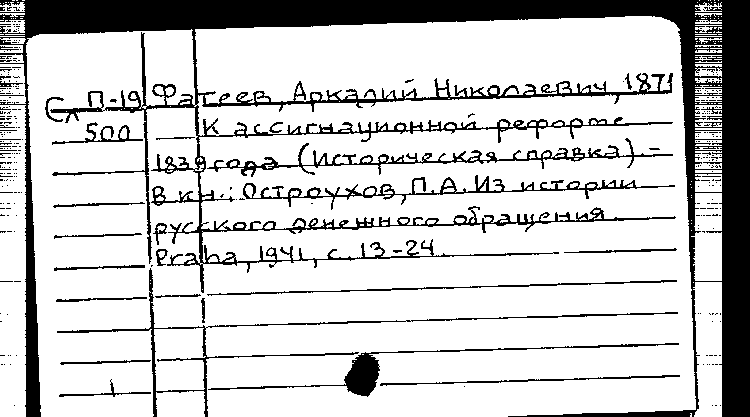 Сл П-19 Фатеев, Аркадий Николаевич, 1871
500 К ассигнационной реформе
1839 года (Историческая справка) -
В кн.: Остроухов, П.А. Из истории
русского денежного обращения
Praha, 1941, с. 13-24
1